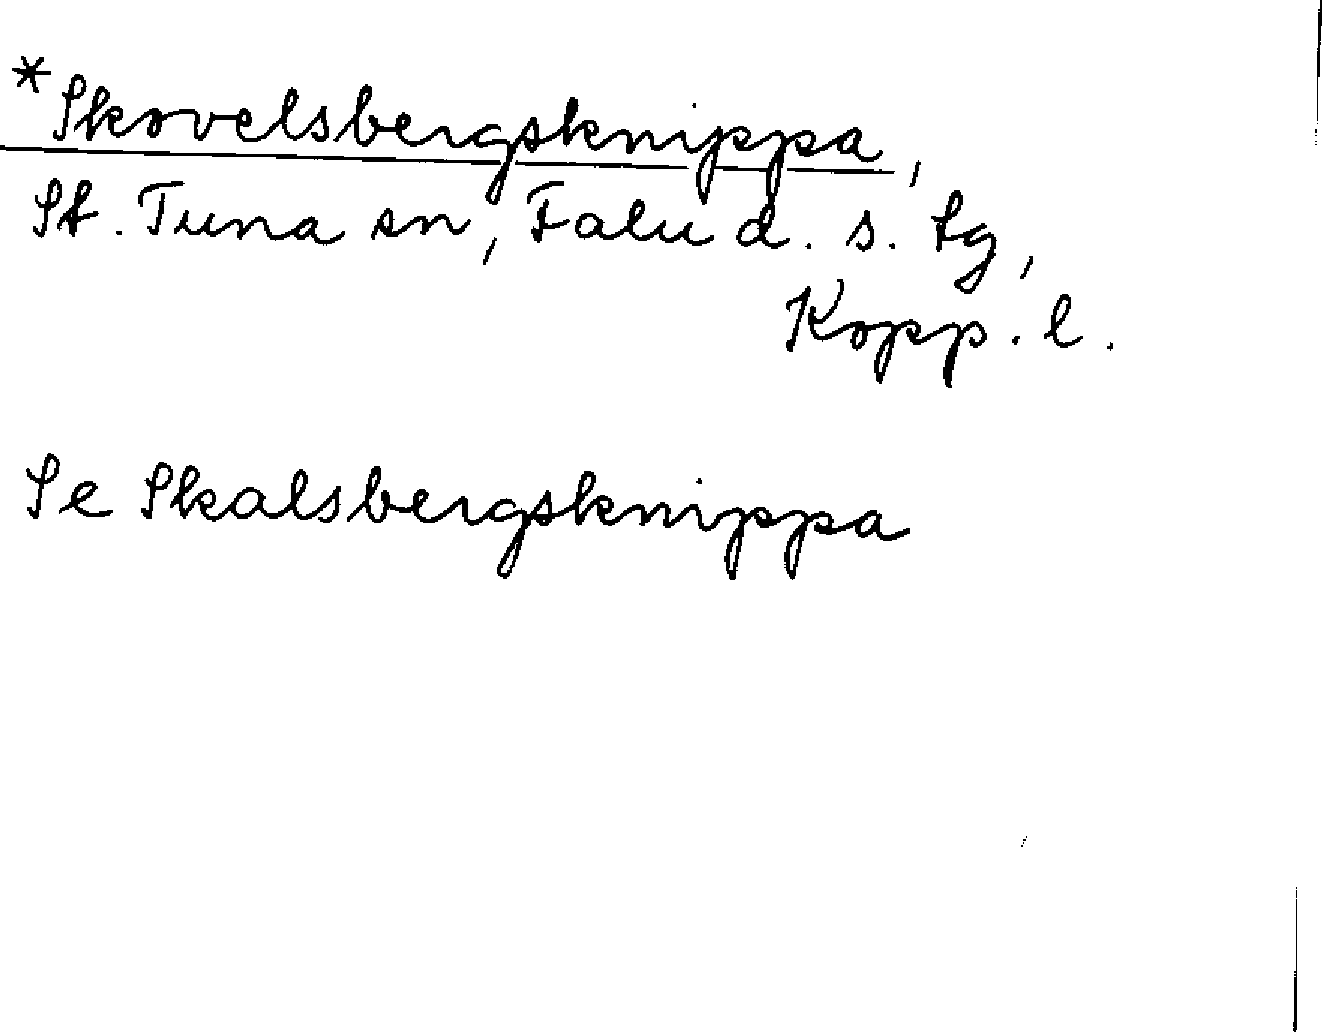 *Skovelsbergsknippa,
St. Tuna sn, Falu d. s. tg,
Kopp. l.
Se Skalsbergsknippa